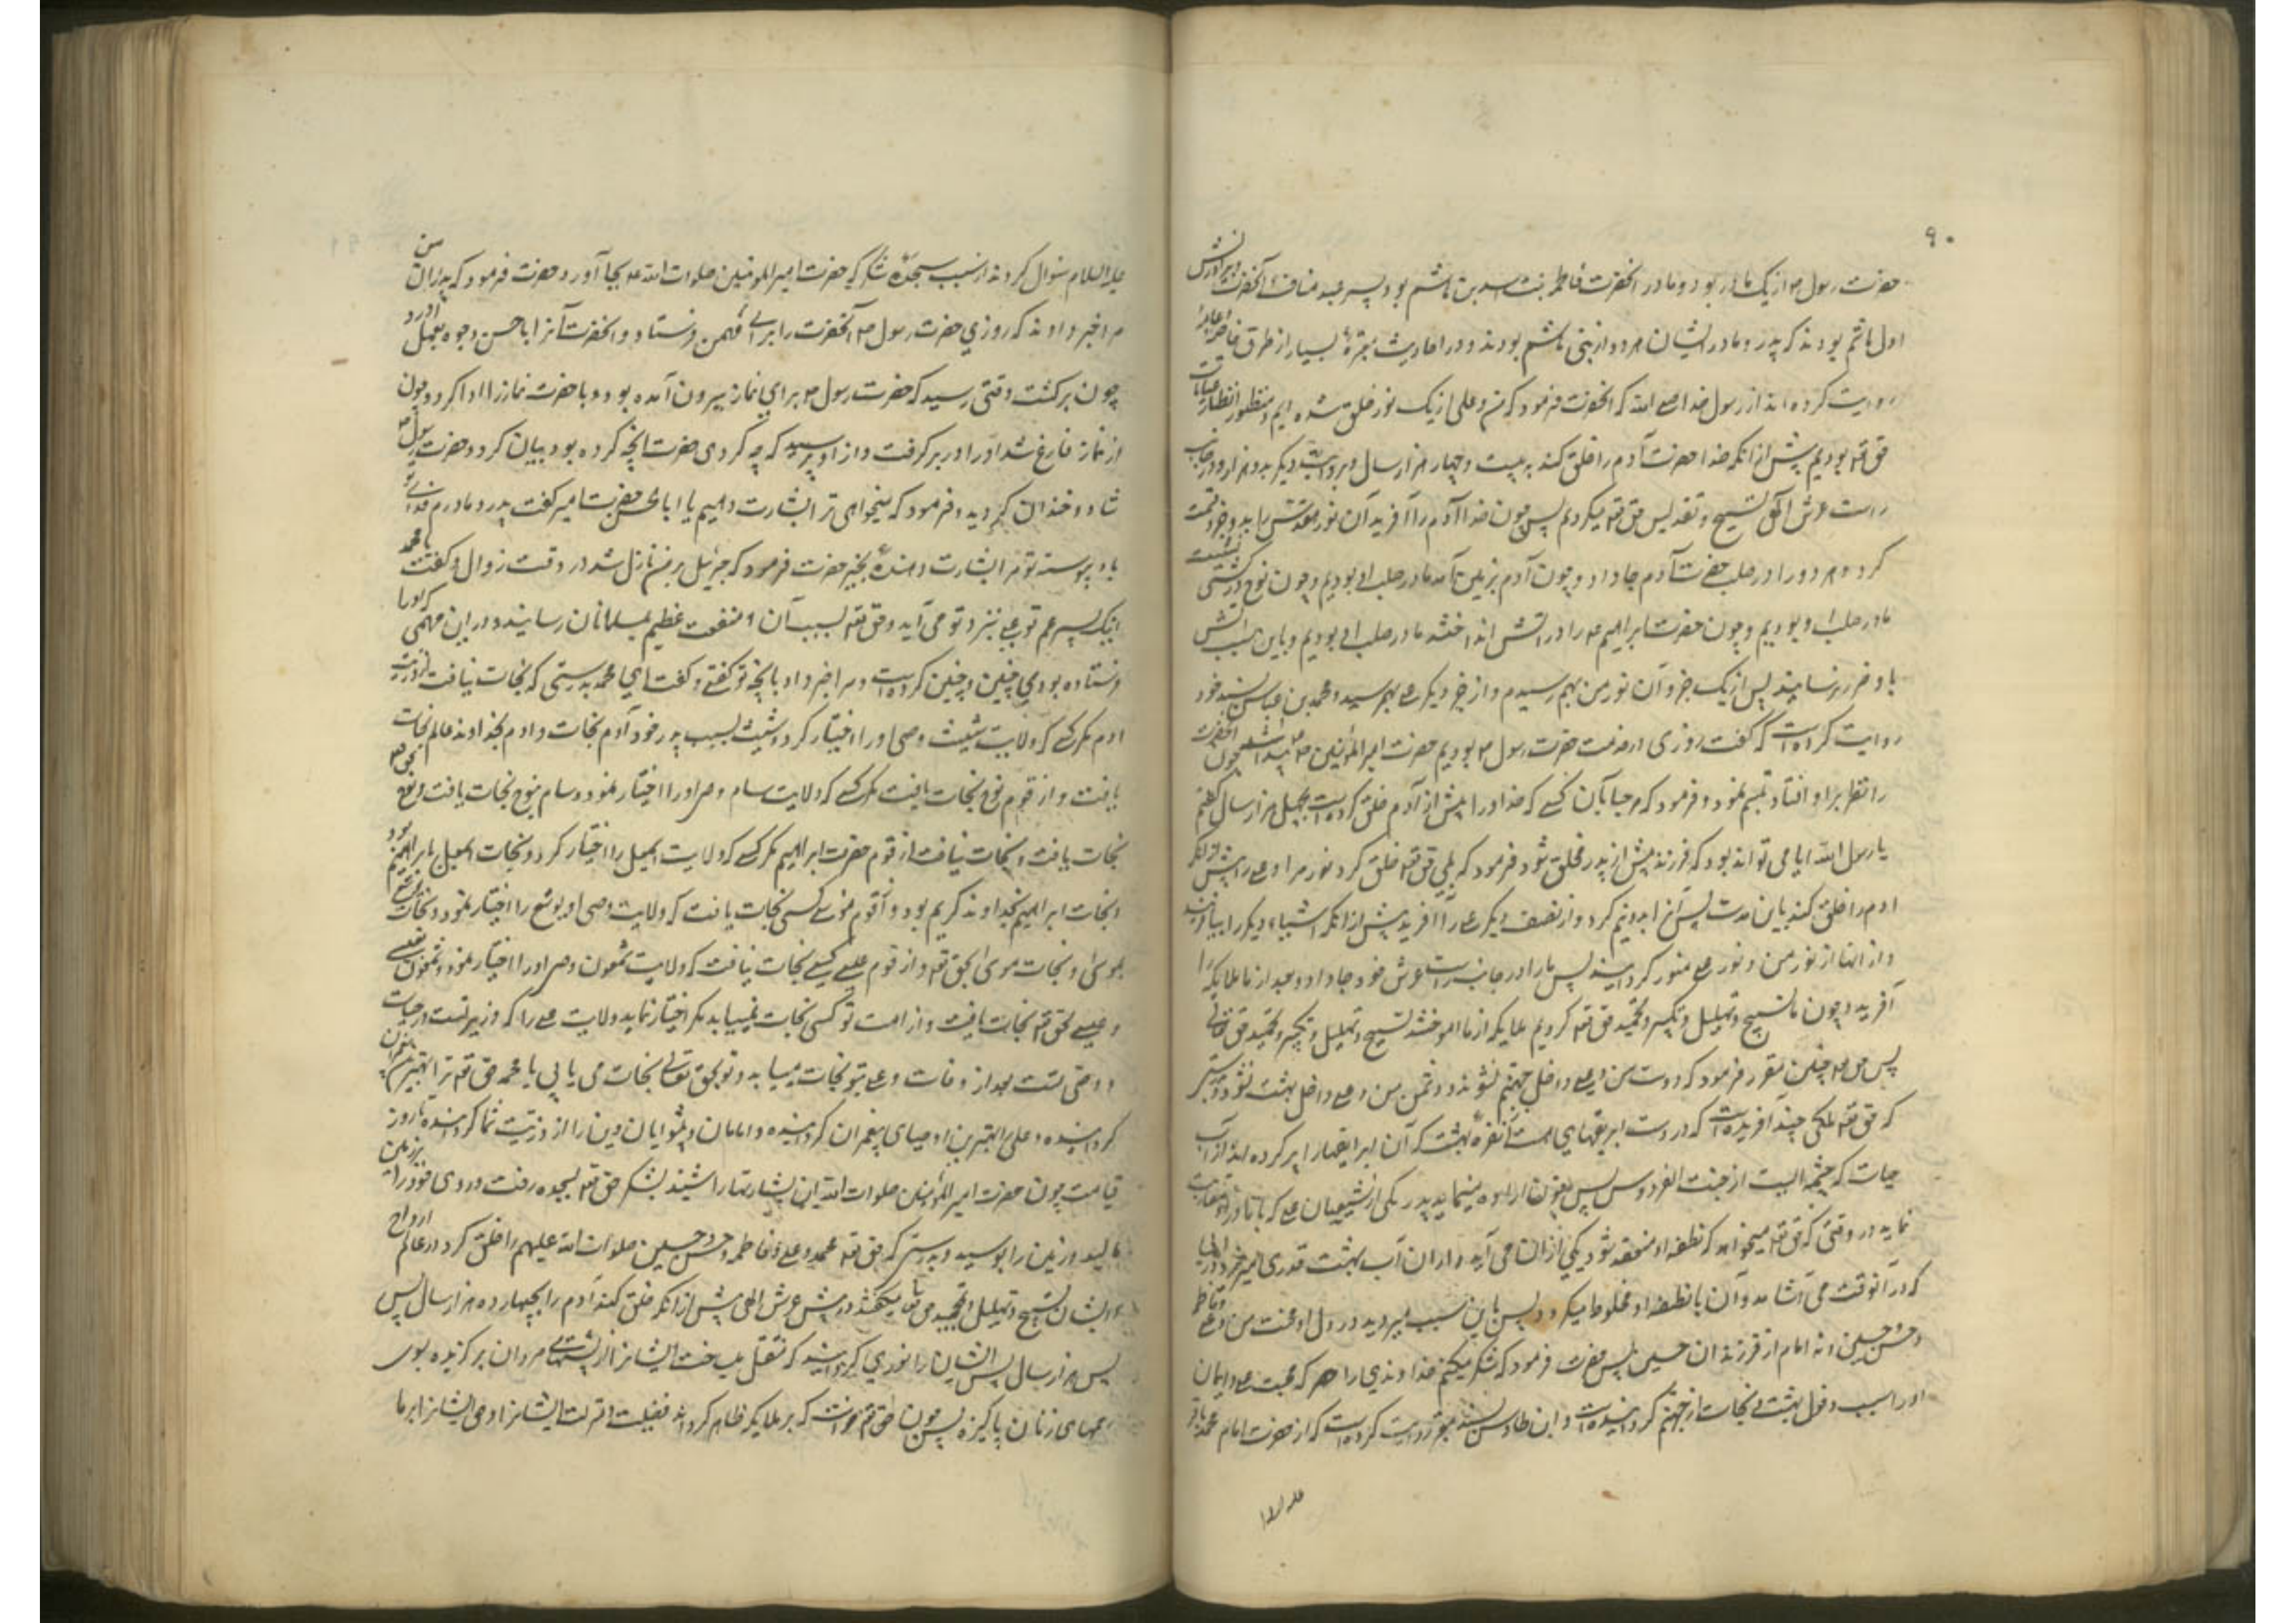 ۹۰
حضرت رسول ص از یک مادر بود و مادر آنحضرت فاطمه بنت اسد بن هاشم بود پسر عبد مناف آنحضرت و برادرانش
اول هاشمی بودند که پدر و مادر ایشان هر دو از بنی هاشم بودند و در احادیث معتبره بسیار از طرق خاصه و عامه
روایت کرده اند از رسول خدا صلی الله که آنحضرت فرمود که من و علی از یک نور خلق شده ایم و منظور انظار عنایات
حق تعه بودیم پیش از آنکه خدا حضرت آدم را خلق کند به بیست و چهار هزار سال و بروایت دیگر بدو هزار و در جانب
راست عرش الهی تسبیح و تقدیس حق تعه میکردیم پس چون خدا آدم را آفرید آن نور مقدس را بدو جزو قسمت
کرد و هر دو را در صلب حضرت آدم جا داد و چون آدم بزمین آمد ما در صلب او بودیم و چون نوح در کشتی نشست
ما در صلب او بودیم و چون حضرت ابراهیم ع را در آتش انداختند ما در صلب او بودیم و باین سبب آتش
باو ضرر نرسانید پس از یک جزو آن نور من بهم رسیدم و از جزو دیگر علی بهم رسید و محمد بن عباس بسند خود
روایت کرده است که گفت روزی در خدمت حضرت رسول ص بودیم حضرت امیر المؤمنین ع پیدا شد چون آنحضرت
را نظر بر او افتاد تبسم نمود و فرمود که مرحبا بآن کسی که خدا او را پیش از آدم خلق کرده است بچهل هزار سال گفتم
یا رسول الله ایا می تواند بود که فرزند پیش از پدر مخلوق شود فرمود که بلی حق تعه خلق کرد نور مرا و علی را پیش از آنکه
ادم را خلق کند باین مدت پس آنرا بدو نیم کرد و از نصف دیگر علی را آفرید پیش از آنکه اشیاء دیگر را بیافریند
و از انها از نور من و نور علی منور گردانید پس ما را در جانب راست عرش خود جا داد و بعد از ما ملایکه را
آفرید و چون ما تسبیح و تهلیل و تکبیر و تحمید حق تعه کردیم ملایکه از ما اموختند تسبیح و تهلیل و تکبیر و تحمید حق تعالی
پس حق تعه چنین مقرر فرمود که دوست من و علی داخل جهنم نشوند و دشمن من و علی داخل بهشت نشود و بدرستی
که حق تعه ملکی چند آفریده است که در دست ابریقهای هست از نقره بهشت که آن ابریقها را پر کرده اند از آب
حیات که چشمه ایست از جنت الفردوس پس چون اراده مینماید پدر یکی از شیعیان علی که با مادر او مقاربت
نماید در وقتی که حق تعه میخواهد که نطفه او منعقد شود یکی از انان می آید و از ان آب بهشت قدری میریزد در آبی
که در آنوقت می آشامد و آن با نطفه او مخلوط میگردد پس باین سبب میروید در دل او محبت من و علی و فاطمه
و حسن و حسین و نه امام از فرزندان حسین پس حضرت فرمود که شکر میکنم خداوندی را که محبت علی و ایمان
او را سبب دخول بهشت و نجات از جهنم گردانیده است و ابن طاوس بسند معتبر روایت کرده است که از حضرت امام محمد باقر
علیه السلام
علیه السلام سؤال کردند از سبب سجده شکر که حضرت امیر المومنین صلوات الله علیه بجا آورد حضرت فرمود که پدران من
مرا خبر دادند که روزی حضرت رسول ص آنحضرت را برای مهمی فرستاد و آنحضرت آنرا باحسن وجوه بعمل آورد
چون برگشت وقتی رسید که حضرت رسول ص برای نماز بیرون آمده بود و با حضرت نماز را ادا کرد و چون
از نماز فارغ شد او را در بر گرفت و از او پرسید که چه کردی حضرت آنچه کرده بود بیان کرد و حضرت رسول ص
شاد و خندان گردید و فرمود که میخواهی ترا بشارت دهیم یا ابا الحسن حضرت امیر گفت پدر و مادرم فدای تو
باد پیوسته تو مرا بشارت دهنده بخیر حضرت فرمود که جبرئیل بر من نازل شد در وقت زوال و گفت یا محمد
اینک پسر عم تو علی نزد تو می آید و حق تعه بسبب آن منفعت عظیم بمسلمانان رسانید و در این مهمی که او را
فرستاده بودی چنین و چنین کرده است و مرا خبر داد بآنچه تو گفتی و گفت ای محمد بدرستی که نجات نیافت از ذریت
ادم مگر کسی که ولایت شیث وصی او را اختیار کرد و شیث بسبب پدر خود آدم نجات و ادم بخداوند عالم نجات
یافت و از قوم نوح نجات نیافت مگر کسی که ولایت سام وصی او را اختیار نمود و سام بنوح نجات یافت و نوح بحق تعه
نجات یافت و نجات نیافت از قوم حضرت ابراهیم مگر کسی که ولایت اسمعیل را اختیار کرد و نجات اسمعیل بابراهیم بود
و نجات ابراهیم بخداوند کریم بود و از قوم موسی کسی نجات یافت که ولایت وصی او یوشع را اختیار نمود و نجات یوشع
بموسی و نجات موسی بحق تعه و از قوم عیسی کسی نجات نیافت که ولایت شمعون وصی او را اختیار نمود و شمعون بعیسی
و عیسی بحق تعه نجات یافت و از امت تو کسی نجات نمییابد مگر اختیار نماید ولایت علی را که وزیر تست در حیات
و وصی تست بعد از وفات و علی بتو نجات مییابد و تو بحق تعالی نجات می یابی یا محمد حق تعه ترا بهترین پیغمبران
گردانیده و علی را بهترین اوصیای پیغمبران گردانیده و امامان و پیشوایان دین را از ذریت شما گردانیده تا روز
قیامت چون حضرت امیر المؤمنین صلوات الله این بشارتها را شنید بشکر حق تعه بسجده رفت و روی خود را بر زمین
مالید و زمین را بوسید و بدرستی که حق تعه محمد و علی و فاطمه و حسن و حسین صلوات الله علیهم را خلق کرد در عالم ارواح
و ایشان تسبیح و تهلیل و تمجید می گفتند در پیش عرش الهی پیش از آنکه خلق کند آدم را بچهارده هزار سال پس
رحمهای زنان پاکیزه پس چون حق تعه خواست که بر ملایکه ظاهر گرداند فضیلت و منزلت ایشانرا و حق ایشانرا بر ما